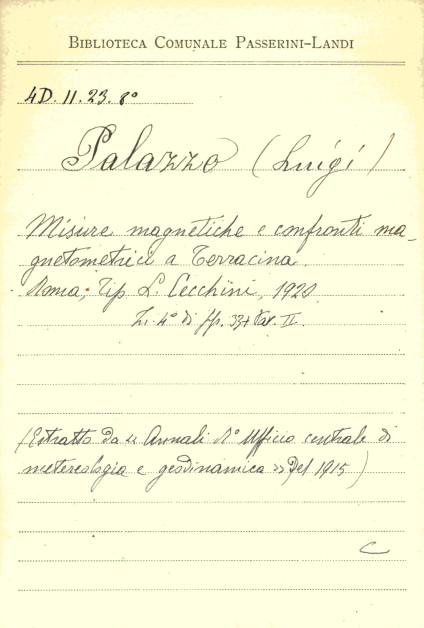 BIBLIOTECA COMUNALE PASSERINI-LANDI
4D. II. 23. 8°
Palazzo (Luigi)
Misure magnetiche e confronti ma-
gnetometrici a Terracina.
Roma, Tip. L. Cecchini, 1920
In 4° di pp. 33+tav. II.
(Estratto da « Annali Ufficio centrale di
metereologia e geodinamica » del 1915)
C